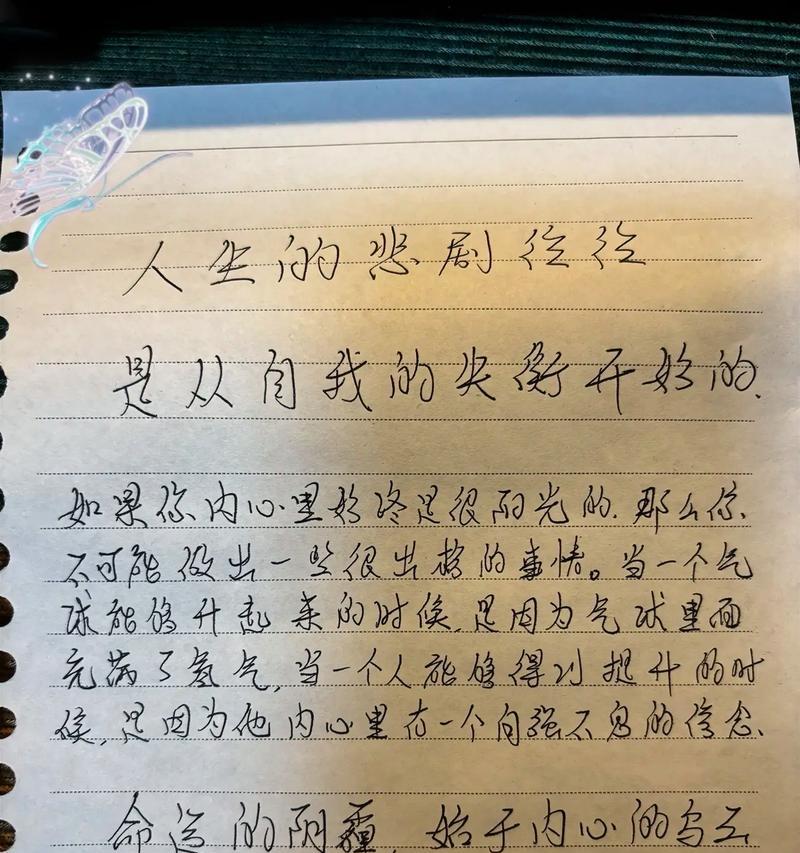 人生的悲剧往往
是从自我的失衡开始的.
如果你内心里始终是很阳光的.那么你.
不可能做出一些很出格的事情。当一个气
球能够升起来的时候.是因为气球里面
充满了氢气,当一个人能够得到提升的时
候,是因为他内心里有一个自强不息的信念.
命运的阴霾,始于内心的乌云